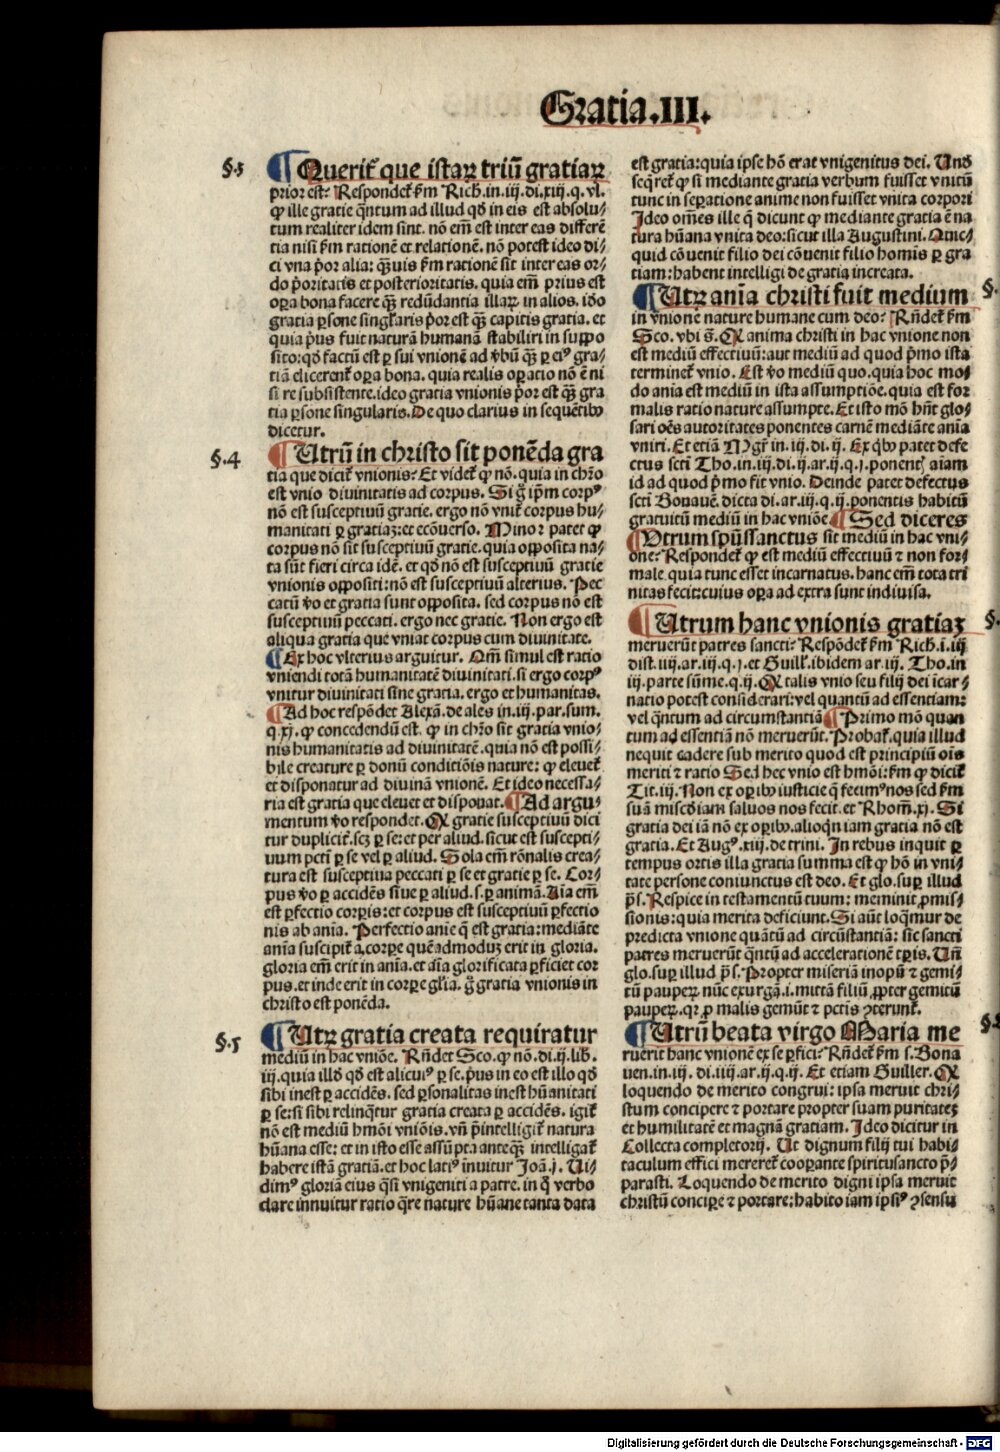 Gratia.III.
§.3
¶ Querit᷑ que istaꝝ triū gratiaꝝ
prior est? Respondet᷑ ẜm Rich.in.iij.di.xiij.q.vl.
ꝙ ille gratie q̄ntum ad illud qd̓ in eis est absolu/
tum realiter idem sint. nō em̄ est inter eas differē
tia nisi ẜm rationē et relationē. nō potest ideo di/
ci vna p̓or alia: q̄ꝫuis ẜm rationē sit inter eas or/
do p̓oritatis et posterioritatis. quia em̄ prius est
oꝑa bona facere qꝫ redūdantia illaꝝ in alios. iō
gratia ꝑsone singl̓aris p̓or est qꝫ capitis gratia. et
quia p̓us fuit naturā humanā stabiliri in suppo
sito: qd̓ factū est ꝑ sui vnionē ad v̓bū qꝫ ꝑ ei⁹ gra/
tiā elicerent᷑ oꝑa bona. quia realis oꝑatio nō ē ni
si re subsistente. ideo gratia vnionis p̓or est qꝫ gra
tia ꝑsone singularis. De quo clarius in sequētibꝰ
dicetur.
§.4
¶ Utrū in christo sit ponēda gra
tia que dicit᷑ vnionis? Et videt᷑ ꝙ nō. quia in chr̄o
est vnio diuinitatis ad corpus. Si g̊ ip̄m corp⁹
nō est susceptiuū gratie. ergo nō vnit᷑ corpus hu/
manitati ꝑ gratiaꝫ: et ecōuerso. Minor patet ꝙ
corpus nō sit susceptiuū gratie. quia opposita na/
ta sūt fieri circa idē. et qd̓ nō est susceptiuū gratie
vnionis oppositi: nō est susceptiuū alterius. Pec
catū v̓o et gratia sunt opposita. sed corpus nō est
susceptiuū peccati. ergo nec gratie. Non ergo est
aliqua gratia que vniat corpus cum diuinitate.
¶ Ex hoc vlterius arguitur. Om̄ simul est ratio
vniendi totā humanitatē diuinitati. si ergo corp⁹
vnitur diuinitati sine gratia. ergo et humanitas.
¶ Ad hoc respōdet Alexā. de ales in.iij.par.sum.
q.xj. ꝙ concedendū est. ꝙ in chr̄o sit gratia vnio/
nis humanitatis ad diuinitatē. quia nō est possi/
bile creature ꝑ donū conditiōis nature: ꝙ eleuet᷑
et disponatur ad diuinā vnionē. Et ideo necessa/
ria est gratia que eleuet et disponat. ¶ Ad argu/
mentum v̓o respondet. Ꝙ gratie susceptiuū dici
tur duplicit᷑. scꝫ ꝑ se: et per aliud. sicut est suscepti/
uum pctī ꝑ se vel ꝑ aliud. Sola em̄ rōnalis crea/
tura est susceptiua peccati ꝑ se et gratie ꝑ se. Cor/
pus v̓o ꝑ accidēs siue ꝑ aliud. s. ꝑ animā. Aīa em̄
est ꝑfectio corꝑis: et corpus est susceptiuū ꝑfectio
nis ab ania. Perfectio anie q̄ est gratia: mediāte
anīa suscipit᷑ a corꝑe quēadmoduꝫ erit in gloria.
gloria em̄ erit in anīa. et aīa glorificata ꝑficiet cor
pus. et inde erit in corꝑe gl̓ia. g̊ gratia vnionis in
christo est ponēda.
§.5
¶ Utꝝ gratia creata requiratur
mediū in hac vniōe. Rn̄det Sco. ꝙ nō. di.ij.lib.
iij. quia illd̓ qd̓ est alicui⁹ ꝑ se. p̓us in eo est illo qd̓
sibi inest ꝑ accidēs. sed ꝑsonalitas inest hūanitati
ꝑ se: si sibi relinq̄tur gratia creata ꝑ accidēs. igit᷑
nō est mediū hmōi vniōis. vn̄ p̄intelligit᷑ natura
hūana esse: et in isto esse assūpta anteqꝫ intelligat᷑
habere istā gratiā. et hoc lati⁹ inuitur Joā.j. Ui/
dim⁹ gloriā eius q̄si vnigeniti a patre. in q̊ verbo
clare innuitur ratio q̄re nature hūane tanta data
est gratia: quia ipse hō erat vnigenitus dei. Und̓
seq̄ret᷑ ꝙ si mediante gratia verbum fuisset vnitū
tunc in seꝑatione anime non fuisset vnita corpori
Ideo om̄es ille q̄ dicunt ꝙ mediante gratia ē na
tura hūana vnita deo: sicut illa Augustini. Quic/
quid cōuenit filio dei cōuenit filio homis ꝑ gra
tiam: habent intelligi de gratia increata.
§.
¶ Utꝝ anīa christi fuit medium
in vnione nature humane cum deo? Rn̄det᷑ ẜm
Sco. vbi s̄. Ꝙ anima christi in hac vnione non
est mediū effectiuū: aut mediū ad quod p̓mo ista
terminet᷑ vnio. Est v̓o mediū quo. quia hoc mo/
do anīa est mediū in ista assumptiōe. quia est for
malis ratio nature assumpte. Et isto mō hn̄t glo/
sari oēs autoritates ponentes carnē mediāte anīa
vniri. Et etiā Mgr̄ in.iij.di.ij. Ex qbꝰ patet defe
ctus scti Tho. in.iij.di.ij.ar.ij.q.j. ponent᷑ aīam
id ad quod p̓mo fit vnio. Deinde patet defectus
scti Bonauē. dicta di.ar.iij.q.ij. ponentis habitū
gratuitū mediū in hac vniōe. ¶ Sed diceres
¶ Utrum spūssanctus sit mediū in hac vni/
one? Respondet᷑ ꝙ est mediū effectiuū ⁊ non for/
male. quia tunc esset incarnatus. hanc em̄ tota tri
nitas fecit: cuius oꝑa ad extra sunt indiuisa.
§.
¶ Utrum hanc vnionis gratiaꝫ
meruerūt patres sancti? Respōdet᷑ ẜm Rich.i.iij
dist.iiij.ar.iij.q.j. et Guill᷑. ibidem ar.iij. Tho. in
iij. parte sūme.q.ij. Ꝙ talis vnio seu filij dei īcar/
natio potest considerari: vel quantū ad essentiam:
vel q̄ntum ad circumstantiā. ¶ Primo mō quan
tum ad essentiā nō meruerūt. Probat᷑. quia illud
nequit cadere sub merito quod est principiū oīs
meriti ⁊ ratio Sed hec vnio est hmōi: ẜm ꝙ dicit᷑
Tit.iij. Non ex oꝑibꝰ iusticie q̄ fecim⁹ nos sed ẜm
suā miscd̓iam saluos nos fecit. et Rhom̄.xj. Si
gratia dei iā nō ex oꝑibꝰ. alioqn̄ iam gratia nō est
gratia. Et Aug⁹.xiij. de trini. In rebus inquit ꝑ
tempus ortis illa gratia summa est ꝙ hō in vni/
tate persone coniunctus est deo. Et glo. suꝑ illud
pˢ. Respice in testamentū tuum: meminit ꝓmis/
sionis: quia merita deficiunt. Si aūt loqmur de
predicta vnione quātū ad circūstantiā: sic sancti
patres meruerūt q̄ntū ad accelerationē tꝑis. Un̄
glo. suꝑ illud pˢ. Propter miseriā inopū ⁊ gemi/
tū pauperꝝ nūc exurgā. i. mittā filiū ꝓpter gemitū
pauperꝝ. qꝛ ꝓ malis gemūt ⁊ pctis ꝯterunt᷑.
§.
¶ Utrū beata virgo Maria me
ruerit hanc vnionē ex se ꝑfici? Rn̄det᷑ ẜm s. Bona
uen. in.iij. di.iiij.ar.ij.q.ij. Et etiam Guiller. Ꝙ
loquendo de merito congrui: ipsa meruit chri/
stum concipere ⁊ portare propter suam puritateꝫ
et humilitatē et magnā gratiam. Ideo dicitur in
Collecta completorij. Ut dignum filij tui habi/
taculum effici mereret᷑ cooꝑante spiritusancto p̄/
parasti. Loquendo de merito digni ipsa meruit
christū concipe ⁊ portare: habito iam ipsi⁹ ꝯsensu
Digitalisierung gefördert durch die Deutsche Forschungsgemeinschaft - DFG